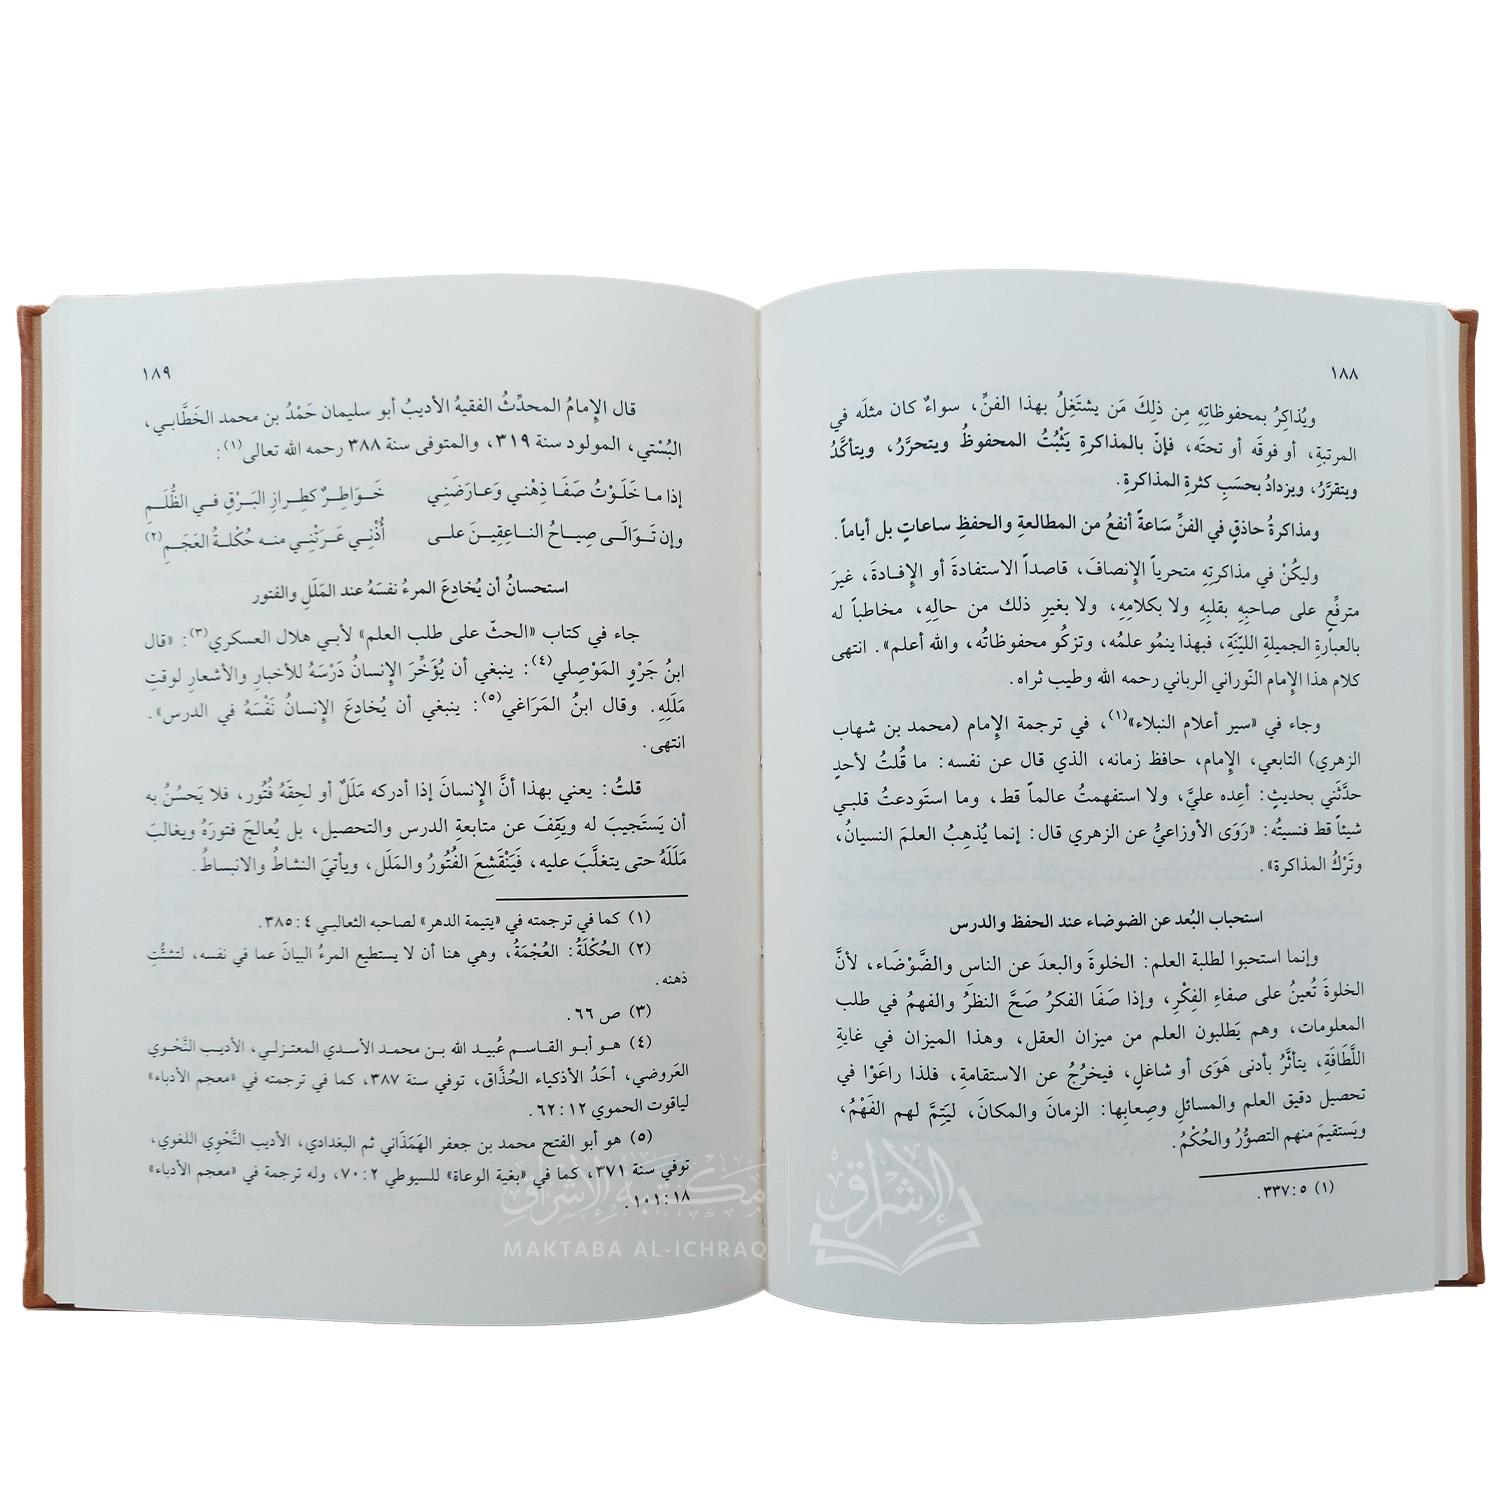 ١٨٨
ويُذاكِرُ بمحفوظاتِهِ مِن ذلِكَ مَن يشتَغِلُ بهذا الفنِّ، سواءٌ كان مثلَه في
المرتبةِ، أو فوقَه أو تحتَه، فإنّ بالمذاكرةِ يَثْبُتُ المحفوظُ ويتحرَّرُ، ويتأكَّدُ
ويتقرَّرُ، ويزدادُ بحسَبِ كثرةِ المذاكرةِ.
ومذاكرةُ حاذقٍ في الفنِّ سَاعةً أنفعُ من المطالعةِ والحفظِ ساعاتٍ بل أياماً.
وليكُنْ في مذاكرتِهِ متحرياً الإنصافَ، قاصداً الاستفادةَ أو الإفادةَ، غيرَ
مترفِّعٍ على صاحبِهِ بقلبِهِ ولا بكلامِهِ، ولا بغيرِ ذلك من حالِهِ، مخاطباً له
بالعبارةِ الجميلةِ الليّنَةِ، فبهذا ينمُو علمُه، وتزكُو محفوظاتُه، والله أعلم». انتهى
كلام هذا الإمام النّوراني الرباني رحمه الله وطيب ثراه.
وجاء في «سير أعلام النبلاء»(١)، في ترجمة الإمام (محمد بن شهاب
الزهري) التابعي، الإمام، حافظ زمانه، الذي قال عن نفسه: ما قُلتُ لأحدٍ
حدَّثَني بحديثٍ: أعِده عليَّ، ولا استفهمتُ عالماً قط، وما استَودعتُ قلبي
شيئاً قط فنسيتُه: «رَوَى الأوزاعيُّ عن الزهري قال: إنما يُذهِبُ العلمَ النسيانُ،
وتَرْكُ المذاكرة».
استحباب البُعد عن الضوضاء عند الحفظ والدرس
وإنما استحبوا لطلبة العلم: الخلوةَ والبعدَ عن الناسِ والضَّوْضَاء، لأنَّ
الخلوةَ تُعينُ على صفاءِ الفِكْرِ، وإذا صَفَا الفكرُ صَحَّ النظرُ والفهمُ في طلب
المعلومات، وهم يَطلبون العلم من ميزان العقل، وهذا الميزان في غايةِ
اللَّطَافَةِ، يتأثَّرُ بأدنى هَوَى أو شاغلٍ، فيخرُجُ عن الاستقامةِ، فلذا راعَوْا في
تحصيل دقيق العلم والمسائلِ وصِعابِها: الزمانَ والمكانَ، ليَتِمَّ لهم الفَهْمُ،
ويَستقيمَ منهم التصوُّرُ والحُكْمُ.
(١) ٥ : ٣٣٧.
١٨٩
قال الإمامُ المحدِّثُ الفقيهُ الأديبُ أبو سليمان حَمْدُ بن محمد الخَطَّابي،
البُسْتي، المولود سنة ٣١٩، والمتوفى سنة ٣٨٨ رحمه الله تعالى(١):
إذا ما خَلَوْتُ صَفَا ذِهْني وَعارَضَني خَوَاطِرٌ كطِرازِ البَرْقِ في الظُّلَمِ
وإن تَوَالَى صِياحُ الناعِقِينَ على أُذْني عَرَتْني منه حُكْلةُ العَجَمِ(٢)
استحسانُ أن يُخادِعَ المرءُ نفسَهُ عند المَلَلِ والفتور
جاء في كتاب «الحثّ على طلب العلم» لأبي هلال العسكري(٣): «قال
ابنُ جَرْوٍ المَوْصِلي(٤): ينبغي أن يُؤَخِّرَ الإنسانُ دَرْسَهُ للأخبارِ والأشعارِ لوقتِ
مَلَلِهِ. وقال ابنُ المَرَاغي(٥): ينبغي أن يُخادِعَ الإنسانُ نَفْسَهُ في الدرس».
انتهى.
قلتُ: يعني بهذا أنَّ الإنسانَ إذا أدركه مَلَلٌ أو لحِقَهُ فُتُور، فلا يَحسُنُ به
أن يَستَجيبَ له ويَقِفَ عن متابعةِ الدرس والتحصيل، بل يُعالجَ فتورَهُ ويغالبَ
مَلَلَهُ حتى يتغلَّبَ عليه، فيَنْقَشِعَ الفُتُورُ والمَلَل، ويأتيَ النشاطُ والانبساطُ.
(١) كما في ترجمته في «يتيمة الدهر» لصاحبه الثعالبي ٤ : ٣٨٥.
(٢) الحُكْلَةُ: العُجْمَةُ، وهي هنا أن لا يستطيع المرءُ البيانَ عما في نفسه، لتشتُّتِ
ذهنه.
(٣) ص ٦٦.
(٤) هو أبو القاسم عُبيد الله بن محمد الأسدي المعتزلي، الأديب النَّحْوي
العَروضي، أحَدُ الأذكياء الحُذَّاق، توفي سنة ٣٨٧، كما في ترجمته في «معجم الأدباء»
لياقوت الحموي ١٢ : ٦٢.
(٥) هو أبو الفتح محمد بن جعفر الهَمَذَاني ثم البغدادي، الأديب النَّحْوي اللغوي،
توفي سنة ٣٧١، كما في «بغية الوعاة» للسيوطي ٢ : ٧٠، وله ترجمة في «معجم الأدباء»
١٨ : ١٠١.
مكتبة الإشراق
الإشراق
MAKTABA AL-ICHRAQ